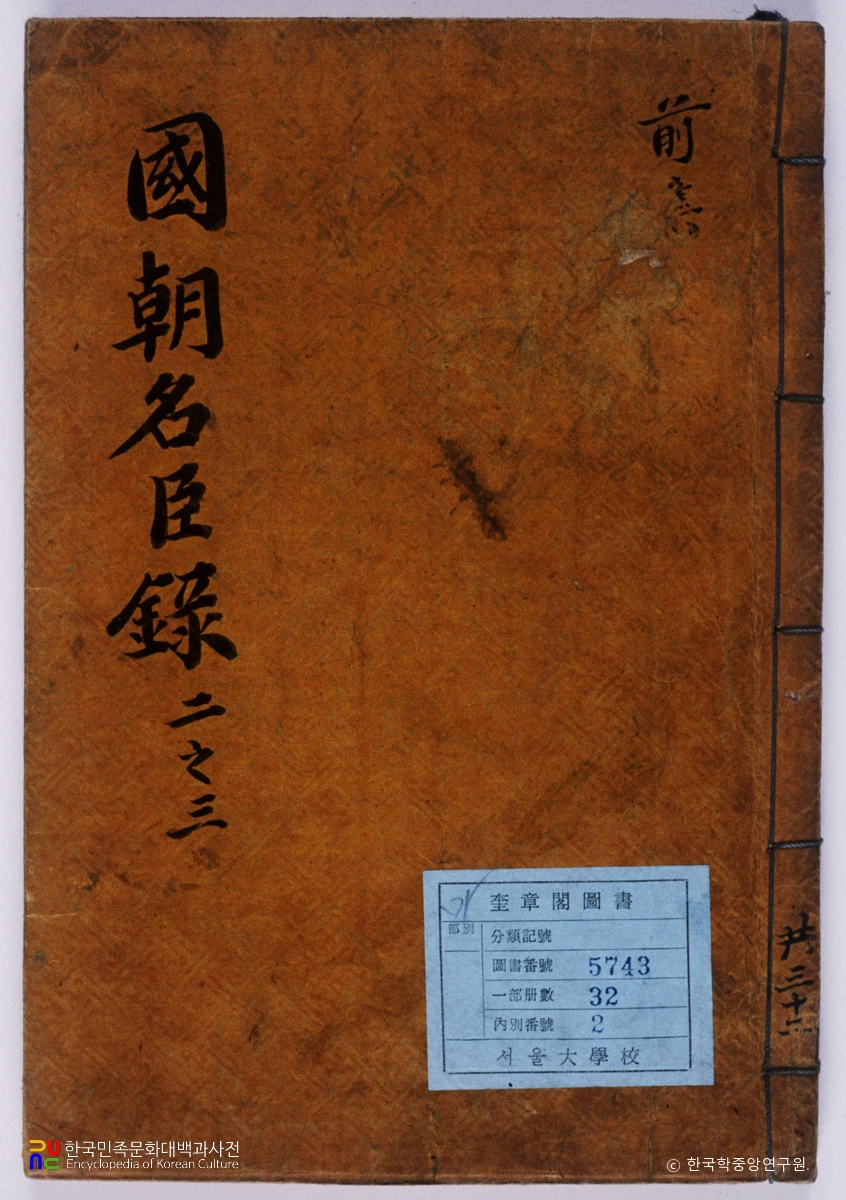 國朝名臣錄 二之三
前
共三十二
奎章閣圖書
가
部別
分類記號
圖書番號 5743
一部册數 32
內別番號 2
서울大學校
한국민족문화대백과사전
Encyclopedia of Korean Culture
© 한국학중앙연구원